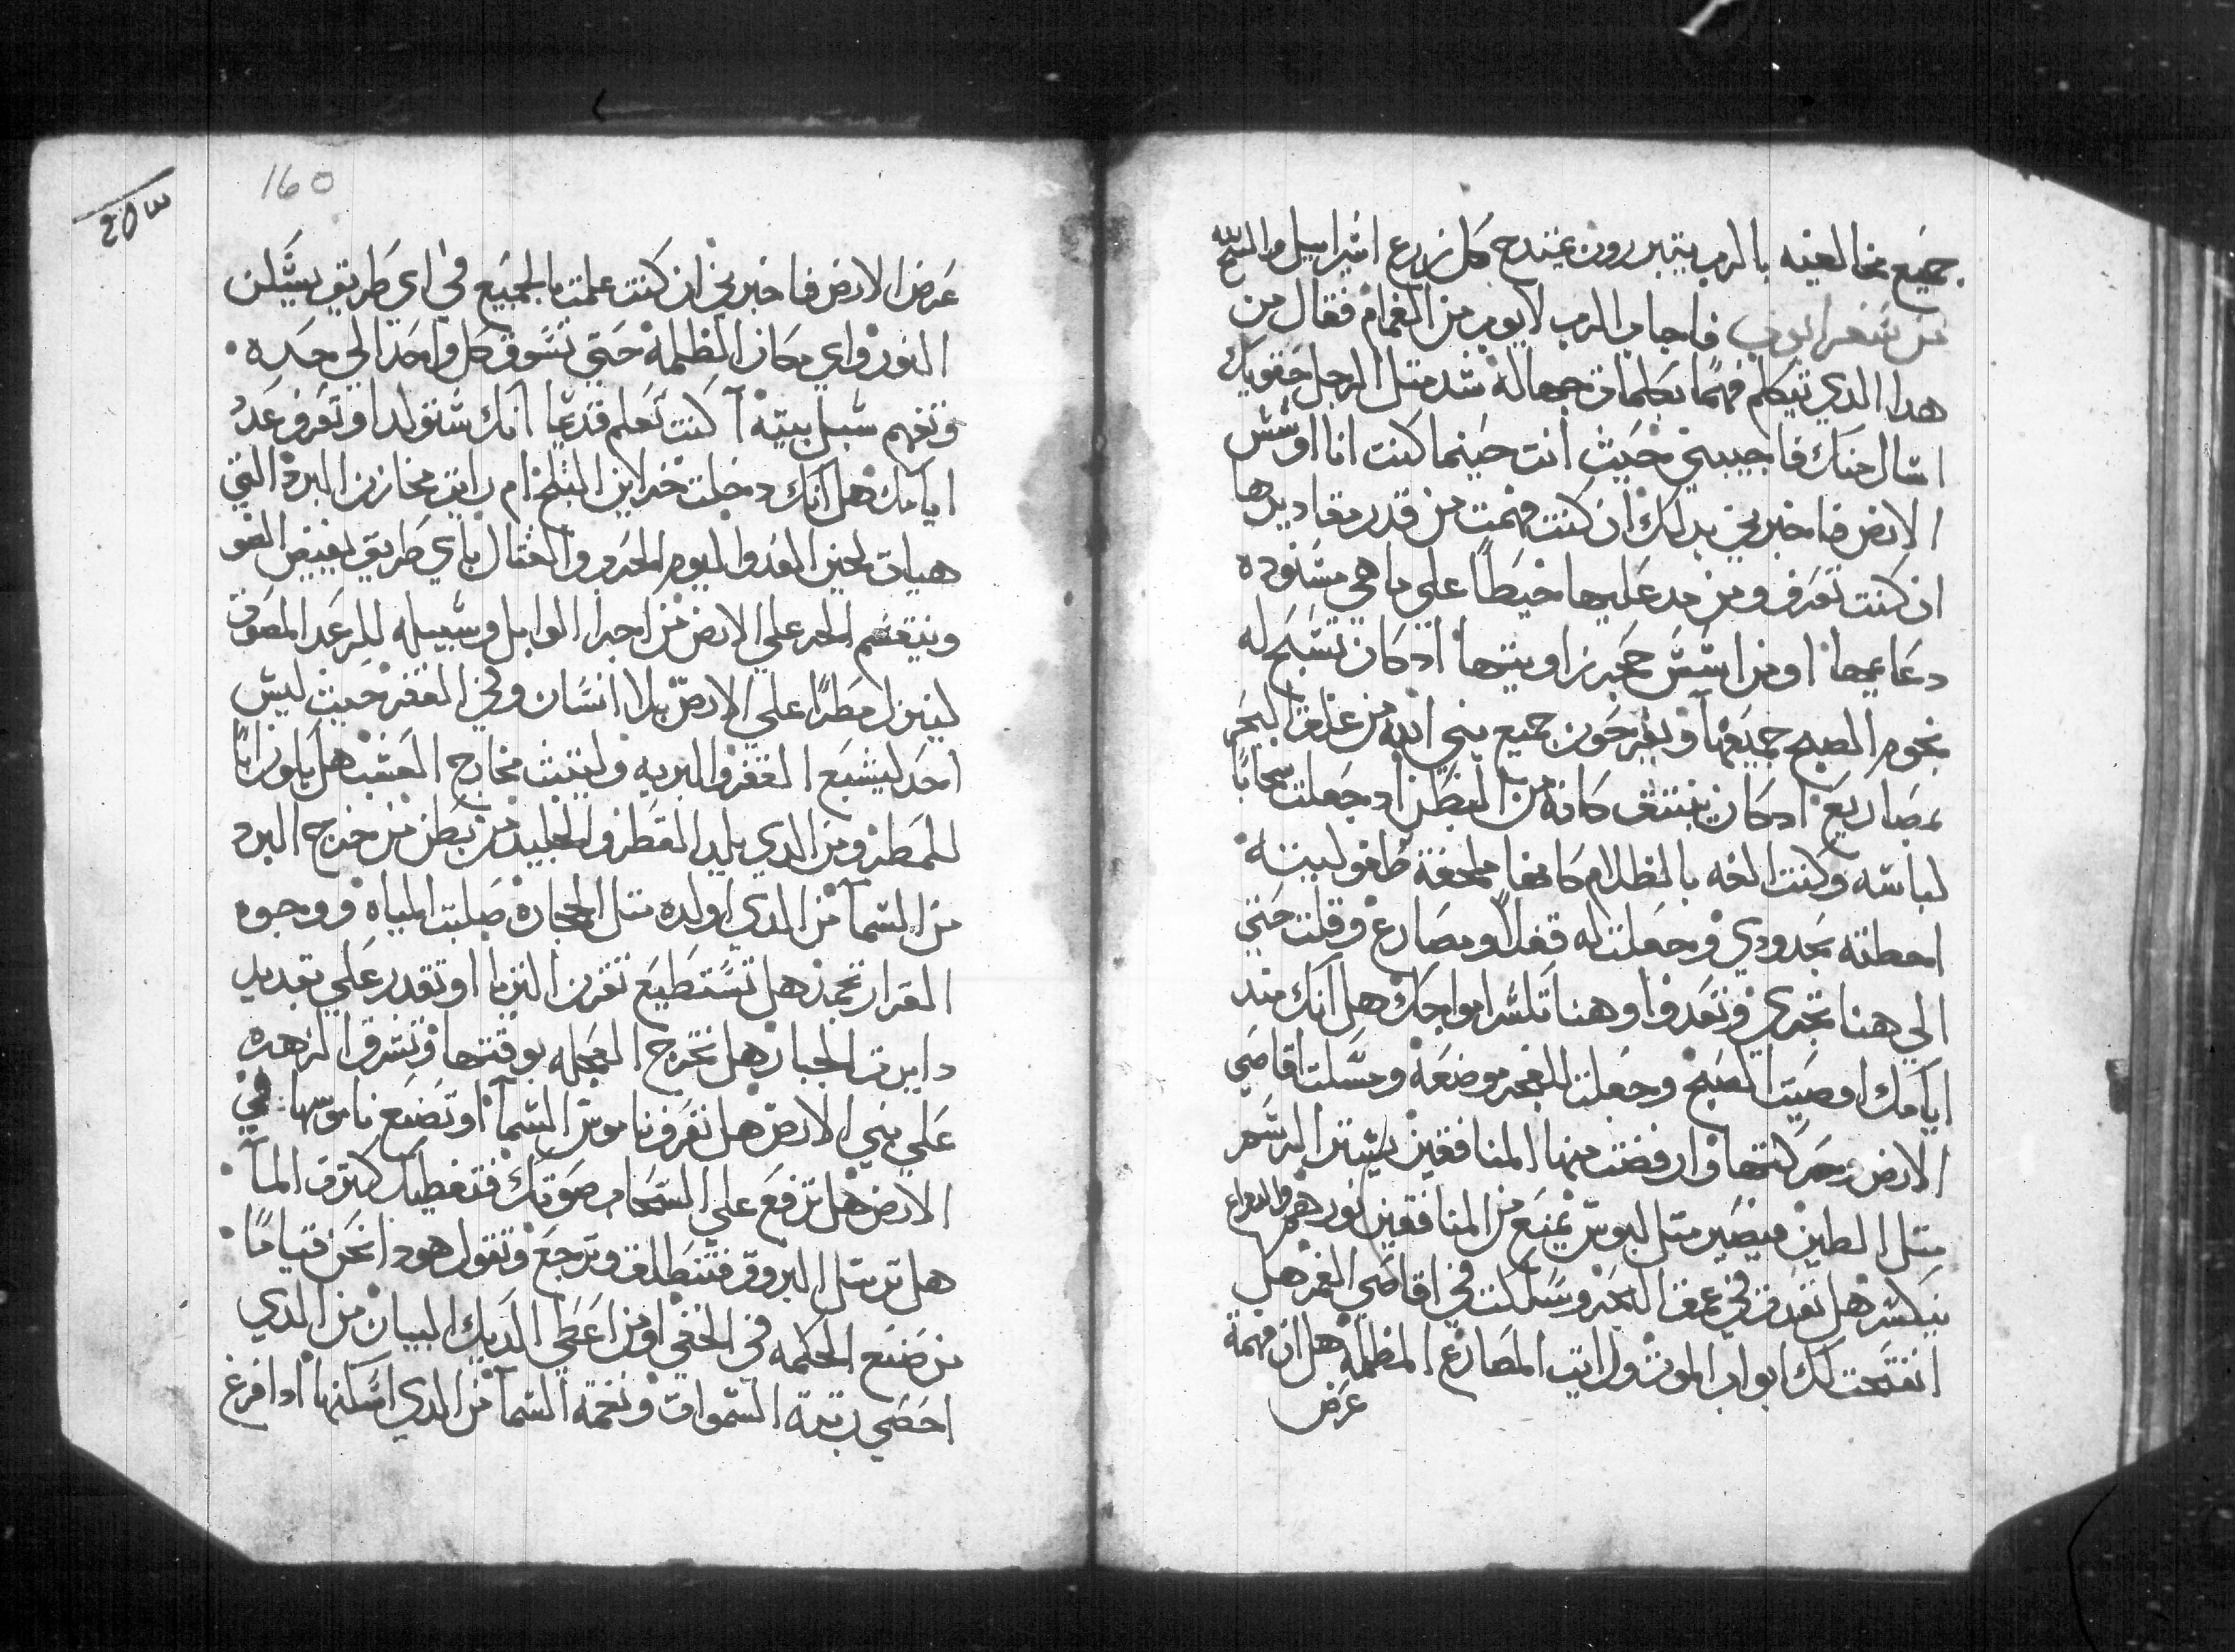 جميع مخالفيه بالرب يتبررون يمتدح كل زرع اسراييل والمسيح لله
من سفر ايوب فاجاب الرب لايوب من الغمام فقال من
هدا الدي يتكلم فهمًا بكلمات جهاله شد متل الرجل حقويك
اسال منك فاجيبني حيث انت حينما كنت انا اوسس
الارض فاخبرني بدلك ان كنت فهمت من قدر مقاديرها
ان كنت تعرف ومن مد عليها خيطًا علي ما هي مسنوده
دعايمها او من اسس حجر زاويتها اد كان تسبح له
نجوم الصبح جميعها ويفرحون جميع بني الله من غلق البحر
بمصاريع اد كان ينبتق كانه من البطن اد جعلت سحابًا
لباسه وكنت الفه بالظلام كانها ملحفة طفوليته
احطته بحدودي وجعلت له قفلًا ومصارع وقلت حتي
الي هنا تجري وتعدوا وهنا تكسر امواجك هل انك مند
ايامك اوصيت الصبح وجعلت للفجر موضعه ومسكت اقاصي
الارض وحركتها وارفضت منها المنافقين يستتر الرسم
متل الطين فيصير متل لبوس يمنع من المنافقين نورهم والدراع
ينكسر هل تعدت في عمق البحر وسلكت في اقاصي الغمر هل
انفتحت لك ابواب الموت ورايت المصارع المظلمة هل ان فهمة
عرض
160
203
عرض الارض فاخبرني ان كنت علمت بالجميع في اي طريق يسكن
النور واي مكان الظلمه حتي تسوق كل واحد الي حده
وتفهم سبل بيته اكنت تعلم قديمًا انك ستولد او تعرف عدد
ايامك هل انك دخلت خزاين التلج ام رايت مخازن البرد التي
هيات لحين العدو اليوم الحرب والقتال باي طريق يفيض الضو
وينقسم الحر علي الارض من اجرا الوابل وسبيله للرعد المصوت
لينزل مطرًا علي الارض بلا انسان وفي القفر حيث ليس
احد ليشبع القفر والبريه ولينبت مخارج العشب هل يكون ابًا
للمطر ومن الدي يلد القطر والجليد من بطن من خرج البرد
من السما من الدي اولده متل الحجاره صلبت المياه ووجوه
القرار تجمد هل تستطيع تقرن التريا او تقدر علي تبديد
دايرت الجبار هل تخرج العجله بوقتها وتسرق الزهره
علي بني الارض هل تعرف ناموس السما او تضع ناموسها في
الارض هل ترفع علي السحاب صوتك فتغطيك كترت الما
هل ترسل البروق فتنطلق وترجع وتقول هودا نحن قيامًا
من صنع الحكمه في الخفي او من اعطي الديك البيان من الدي
احصي رتبة السموات ونغمة السما من الدي اسكنها ادا فرغ